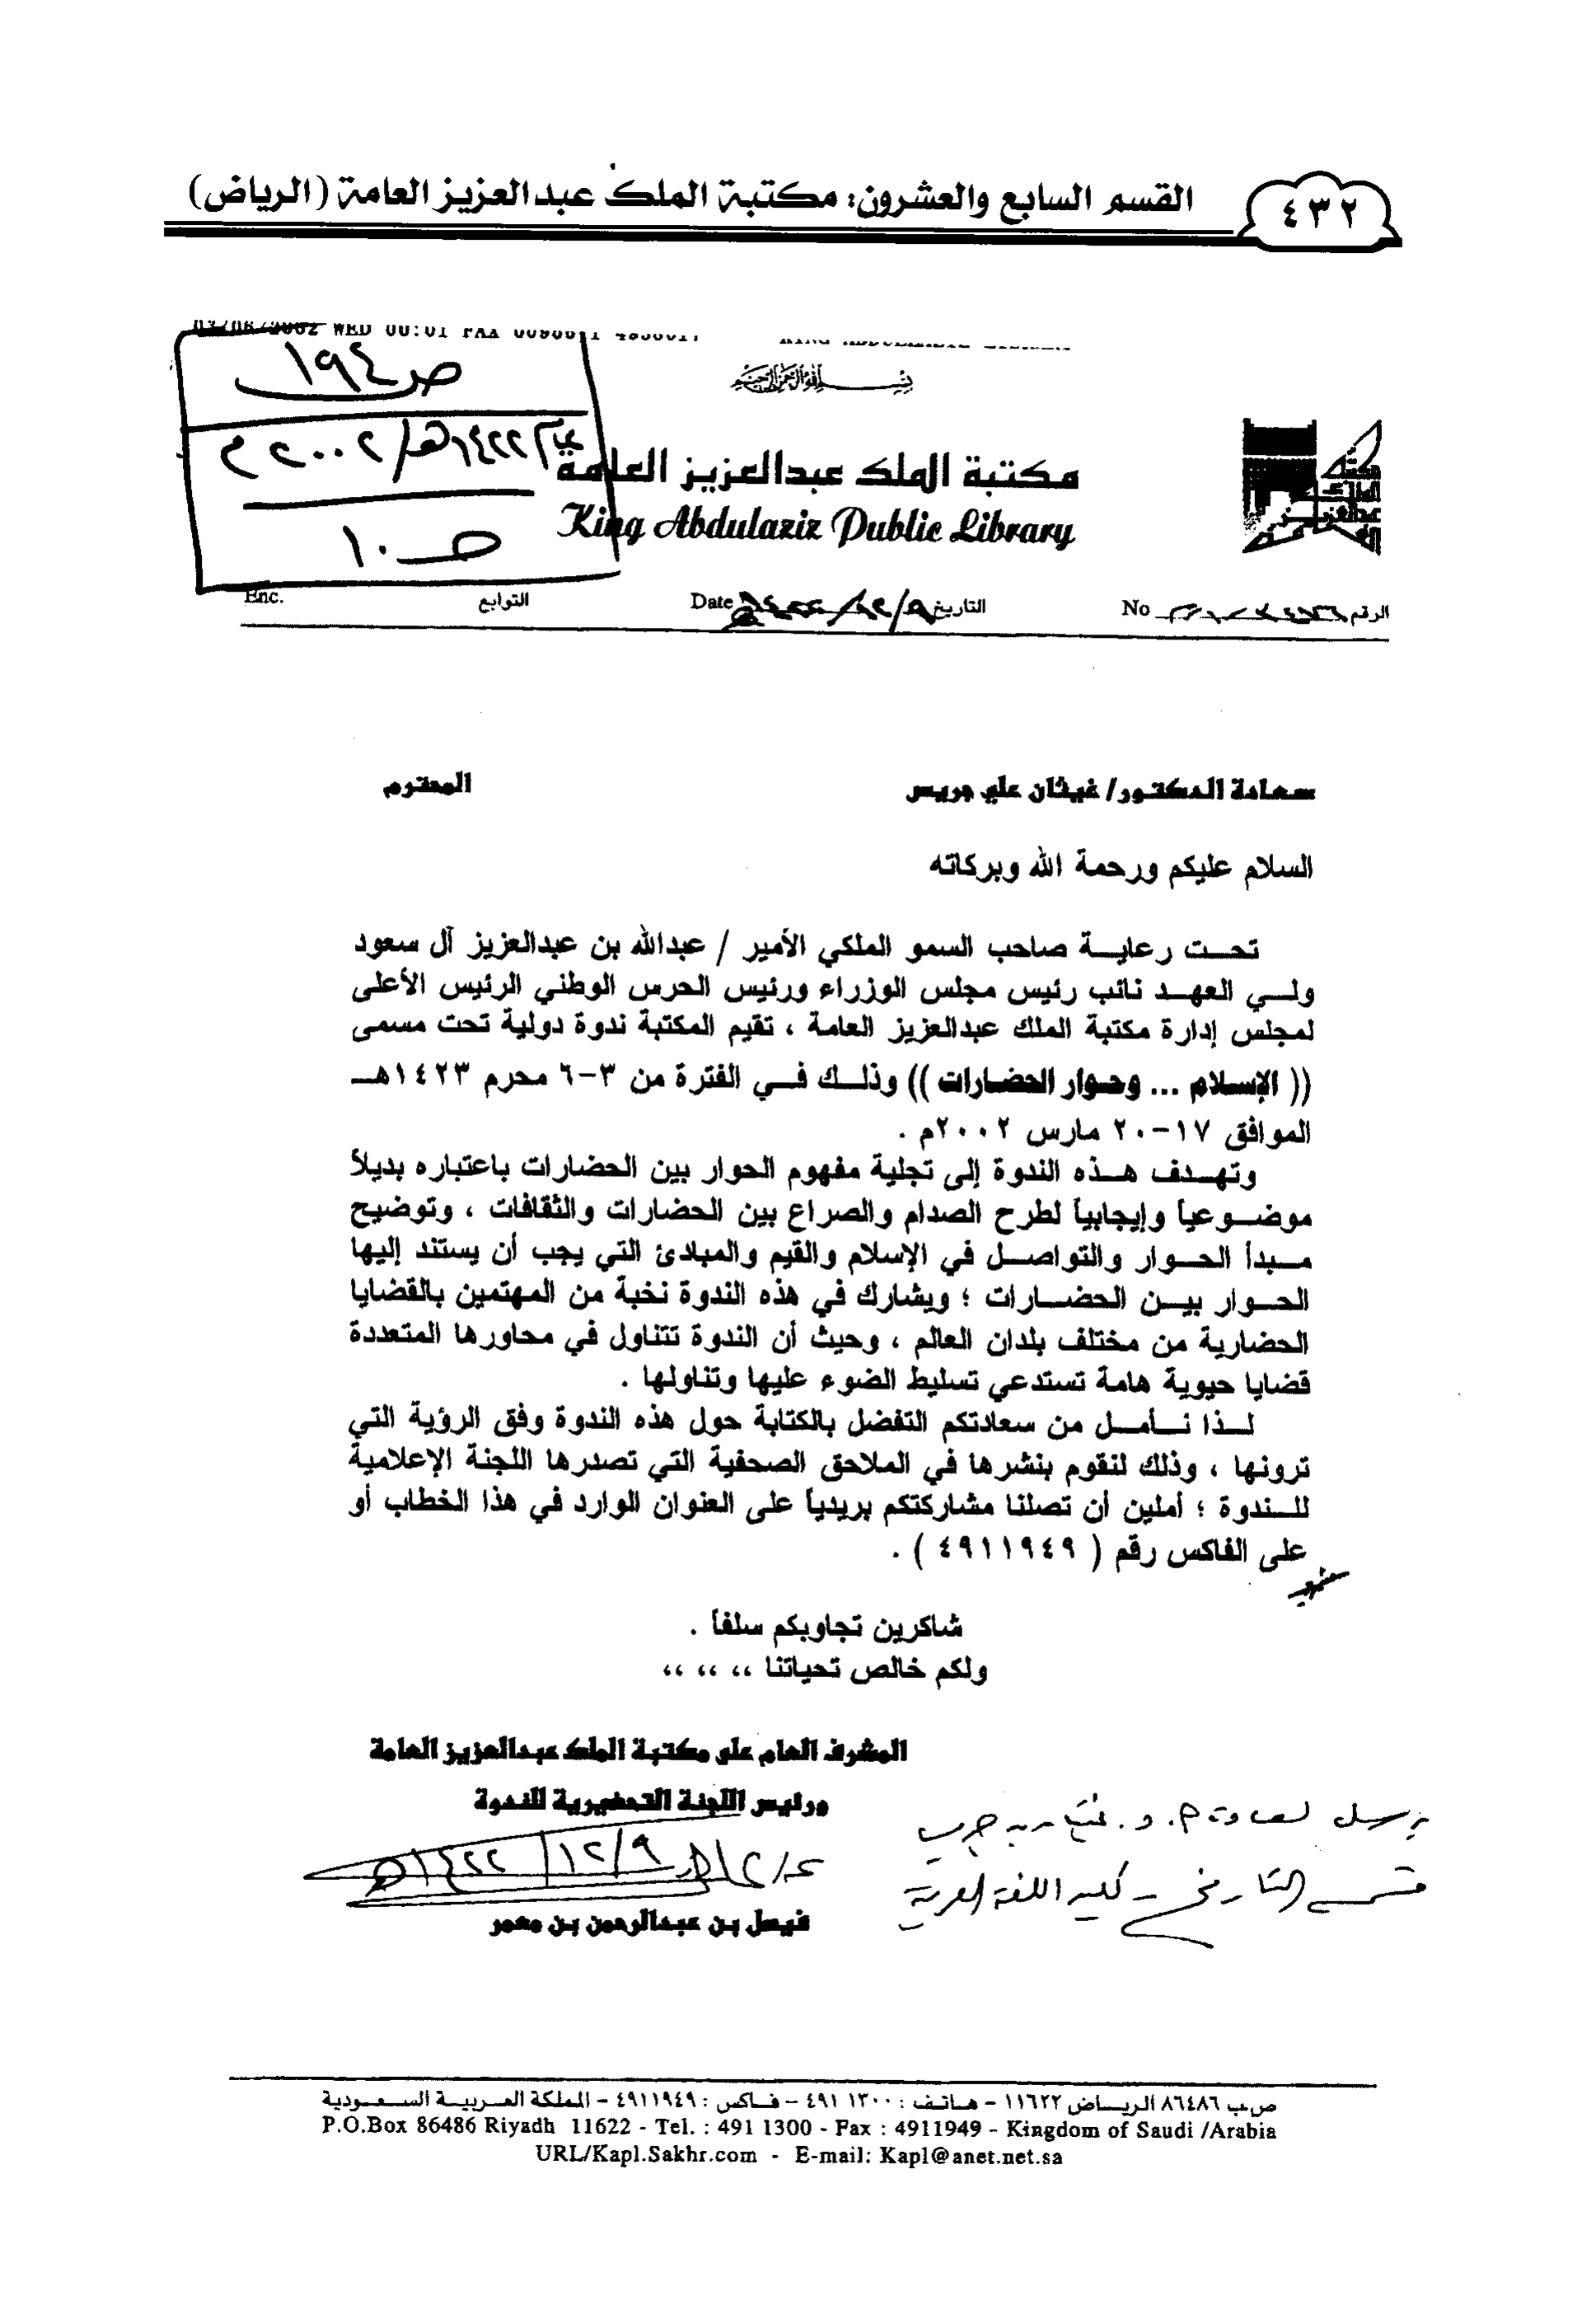 ٤٣٢
القسم السابع والعشرون: مكتبة الملك عبدالعزيز العامة (الرياض)
03/06/2002 WED 00:01 FAX
ص ١٩٤
عام ١٤٢٢هـ/٢٠٠٢م
ص ١٠
بسم الله الرحمن الرحيم
مكتبة الملك عبدالعزيز العامة
King Abdulaziz Public Library
الرقم No التاريخ ٩/١٢/١٤٢٢هـ Date التوابع Enc.
سعادة الدكتور/ غيثان علي جريس المحترم
السلام عليكم ورحمة الله وبركاته
تحـت رعايـة صاحب السمو الملكي الأمير / عبدالله بن عبدالعزيز آل سعود
ولـي العهـد نائب رئيس مجلس الوزراء ورئيس الحرس الوطني الرئيس الأعلى
لمجلس إدارة مكتبة الملك عبدالعزيز العامة ، تقيم المكتبة ندوة دولية تحت مسمى
(( الإسلام ... وحوار الحضارات )) وذلـك فـي الفترة من ٣-٦ محرم ١٤٢٣هـ
الموافق ١٧-٢٠ مارس ٢٠٠٢م .
وتهـدف هـذه الندوة إلى تجلية مفهوم الحوار بين الحضارات باعتباره بديلاً
موضـوعياً وإيجابياً لطرح الصدام والصراع بين الحضارات والثقافات ، وتوضيح
مـبدأ الحـوار والتواصـل في الإسلام والقيم والمبادئ التي يجب أن يستند إليها
الحـوار بيـن الحضـارات ؛ ويشارك في هذه الندوة نخبة من المهتمين بالقضايا
الحضارية من مختلف بلدان العالم ، وحيث أن الندوة تتناول في محاورها المتعددة
قضايا حيوية هامة تستدعي تسليط الضوء عليها وتناولها .
لـذا نـأمـل من سعادتكم التفضل بالكتابة حول هذه الندوة وفق الرؤية التي
ترونها ، وذلك لنقوم بنشرها في الملاحق الصحفية التي تصدرها اللجنة الإعلامية
للـندوة ؛ أملين أن تصلنا مشاركتكم بريدياً على العنوان الوارد في هذا الخطاب أو
على الفاكس رقم ( ٤٩١١٩٤٩ ) .
شاكرين تجاوبكم سلفاً .
ولكم خالص تحياتنا ،، ،، ،،
المشرف العام على مكتبة الملك عبدالعزيز العامة
ورئيس اللجنة التحضيرية للندوة
٩/١٢/١٤٢٢هـ
فيصل بن عبدالرحمن بن معمر
يرسل لسعادة م. د. غيثان بن جريس
قسم التاريخ - كلية اللغة العربية
ص.ب ٨٦٤٨٦ الريـاض ١١٦٢٢ – هـاتـف : ١٣٠٠ ٤٩١ – فـاكس : ٤٩١١٩٤٩ – المملكة العـربيـة السـعـودية
P.O.Box 86486 Riyadh 11622 - Tel. : 491 1300 - Fax : 4911949 - Kingdom of Saudi /Arabia
URL/Kapl.Sakhr.com - E-mail: Kapl@anet.net.sa